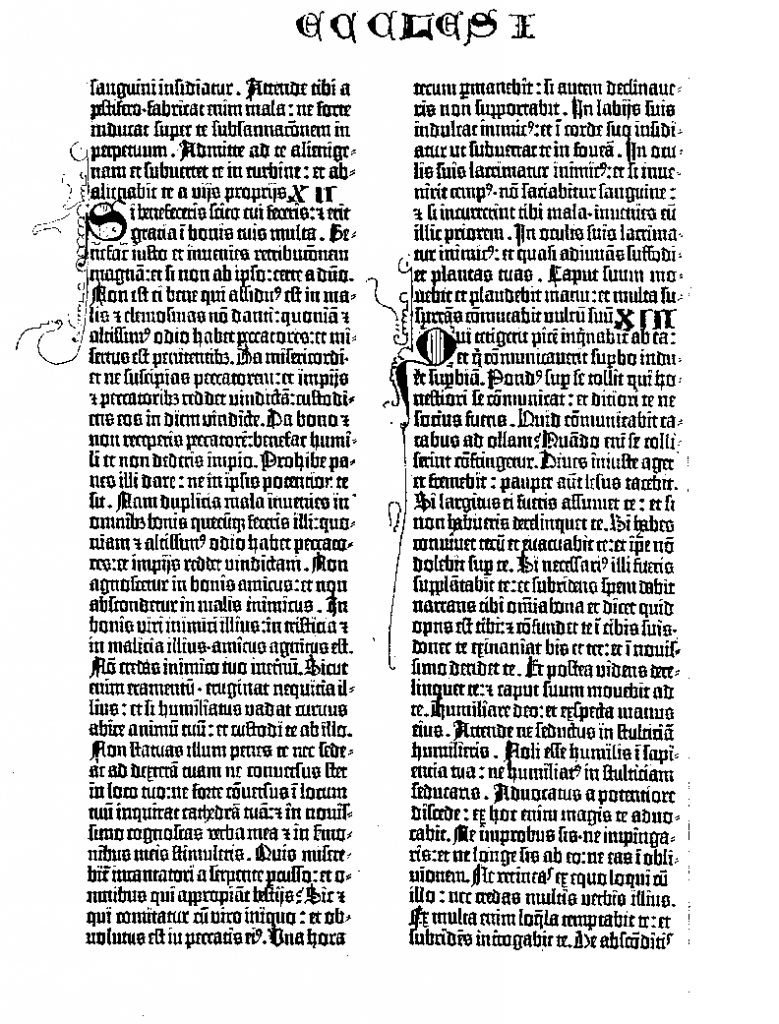 ECCLESI
sanguini insidiatur. Attende tibi a
pestifero·fabricat enim mala: ne forte
inducat super te subsannacōnem in
perpetuum. Admitte ad te alienige-
nam et subvertet te in turbine: et ab-
alienabit te a viis proprijs. XII
Si benefeceris scito cui feceris: ⁊ erit
gratia ī bonis tuis multa. Be-
nefac iusto et invenies retribucōnem
magnā: et si non ab ipso: certe a dn̄o.
Non est ei bene qui assidu⁹ est in ma-
lis ⁊ elemosinas nō danti: quoniā ⁊
altissim⁹ odio habet peccatores: et mi-
sertus est penitentibꝫ. Da misericordi
et ne suscipias peccatorem: et impijs
⁊ peccatoribꝫ reddet vindictā: custodi-
ens eos in diem vindicte. Da bono ⁊
non receperis peccatorē: benefac humi-
li et non dederis impio. Prohibe pa-
nes illi dare: ne in ipsis potentior te
sit. Nam duplicia mala invenies in
omnibꝫ bonis quecūqꝫ feceris illi: quo-
niam ⁊ altissim⁹ odio habet peccato-
res: et impijs reddet vindictam. Non
agnoscetur in bonis amicus: et non
abscondetur in malis inimicus. In
bonis viri inimici illius: in tristicia ⁊
in malicia illius·amicus agnitus est.
Nō credas inimico tuo ineternū. Sicut
enim eramentū·eruginat nequicia il-
lius: et si humiliatus vadat curvus
abice animū tuū: et custodi te ab illo.
Non statuas illum penes te nec sede-
at ad dexterā tuam ne conversus stet
in loco tuo: ne forte cōversus ī locum
tuū inquirat cathedrā tuā: ⁊ in novis-
simo cognoscas verba mea ⁊ in smo-
nibus meis stimuleris. Quis misere-
bit̄ incantatori a serpente pcusso: et o-
mnibus qui appropiāt bestijs? Sic ⁊
qui comitatur cū viro iniquo: et ob-
volutus est in peccatis ei⁹. Una hora
tecum pmanebit: si autem declinave-
ris non supportabit. In labijs suis
indulcat inimic⁹: et ī corde suo insidi-
atur ut subvertat te in foveā. In ocu-
lis suis lacrimatur inimic⁹: et si inve-
nerit temp⁹·nō saciabitur sanguine:
⁊ si incurrerint tibi mala·invenies eū
illic priorem. In oculis suis lacrima-
tur inimic⁹: et quasi adiuvās suffodi-
et plantas tuas. Caput suum mo-
vebit et plaudebit manu: et multa su-
surrās cōmutabit vultū suū. XIII
Qui tetigerit picē inqnabit̄ ab ea:
et q̄ cōmunicaverit supbo indu-
et supbiā. Pond⁹ sup se tollit qui ho-
nestiori se cōmunicat: et ditiori te ne
socius fueris. Quid cōmunicabit ca-
cabus ad ollam? Quādo enī se colli-
serint cōfringetur. Dives iniuste aget
et fremebit: pauper aūt lesus tacebit.
Si largitus ei fueris assumet te: et si
non habueris derelinquet te. Si habes
convivet tecū et evacuabit te: et ip̄e nō
dolebit sup te. Si necessari⁹ illi fueris
supplātabit te: et subridens spem dabit
narrans tibi om̄ia bona et dicet quid
opus est tibi: ⁊ cōfundet te ī cibis suis·
donec te exinaniat bis et ter: et ī novis-
simo deridet te. Et postea videns dere-
linquet te: ⁊ caput suum movebit ad
te. Humiliare deo: et exspecta manus
eius. Attende ne seductus in stulticiā
humilieris. Noli esse humilis ī sapi-
encia tua: ne humiliat⁹ in stulticiam
seducaris. Advocatus a potentiore
discede: ex hoc enim magis te advo-
cabit. Ne improbus sis·ne impinga-
ris: et ne longe sis ab eo: ne eas ī obli-
vionem. Ne retineas ex equo loqui cū
illo: nec credas multis verbis illius.
Ex multa enim loqla temptabit te: et
subridēs interrogabit te. De abscōditis